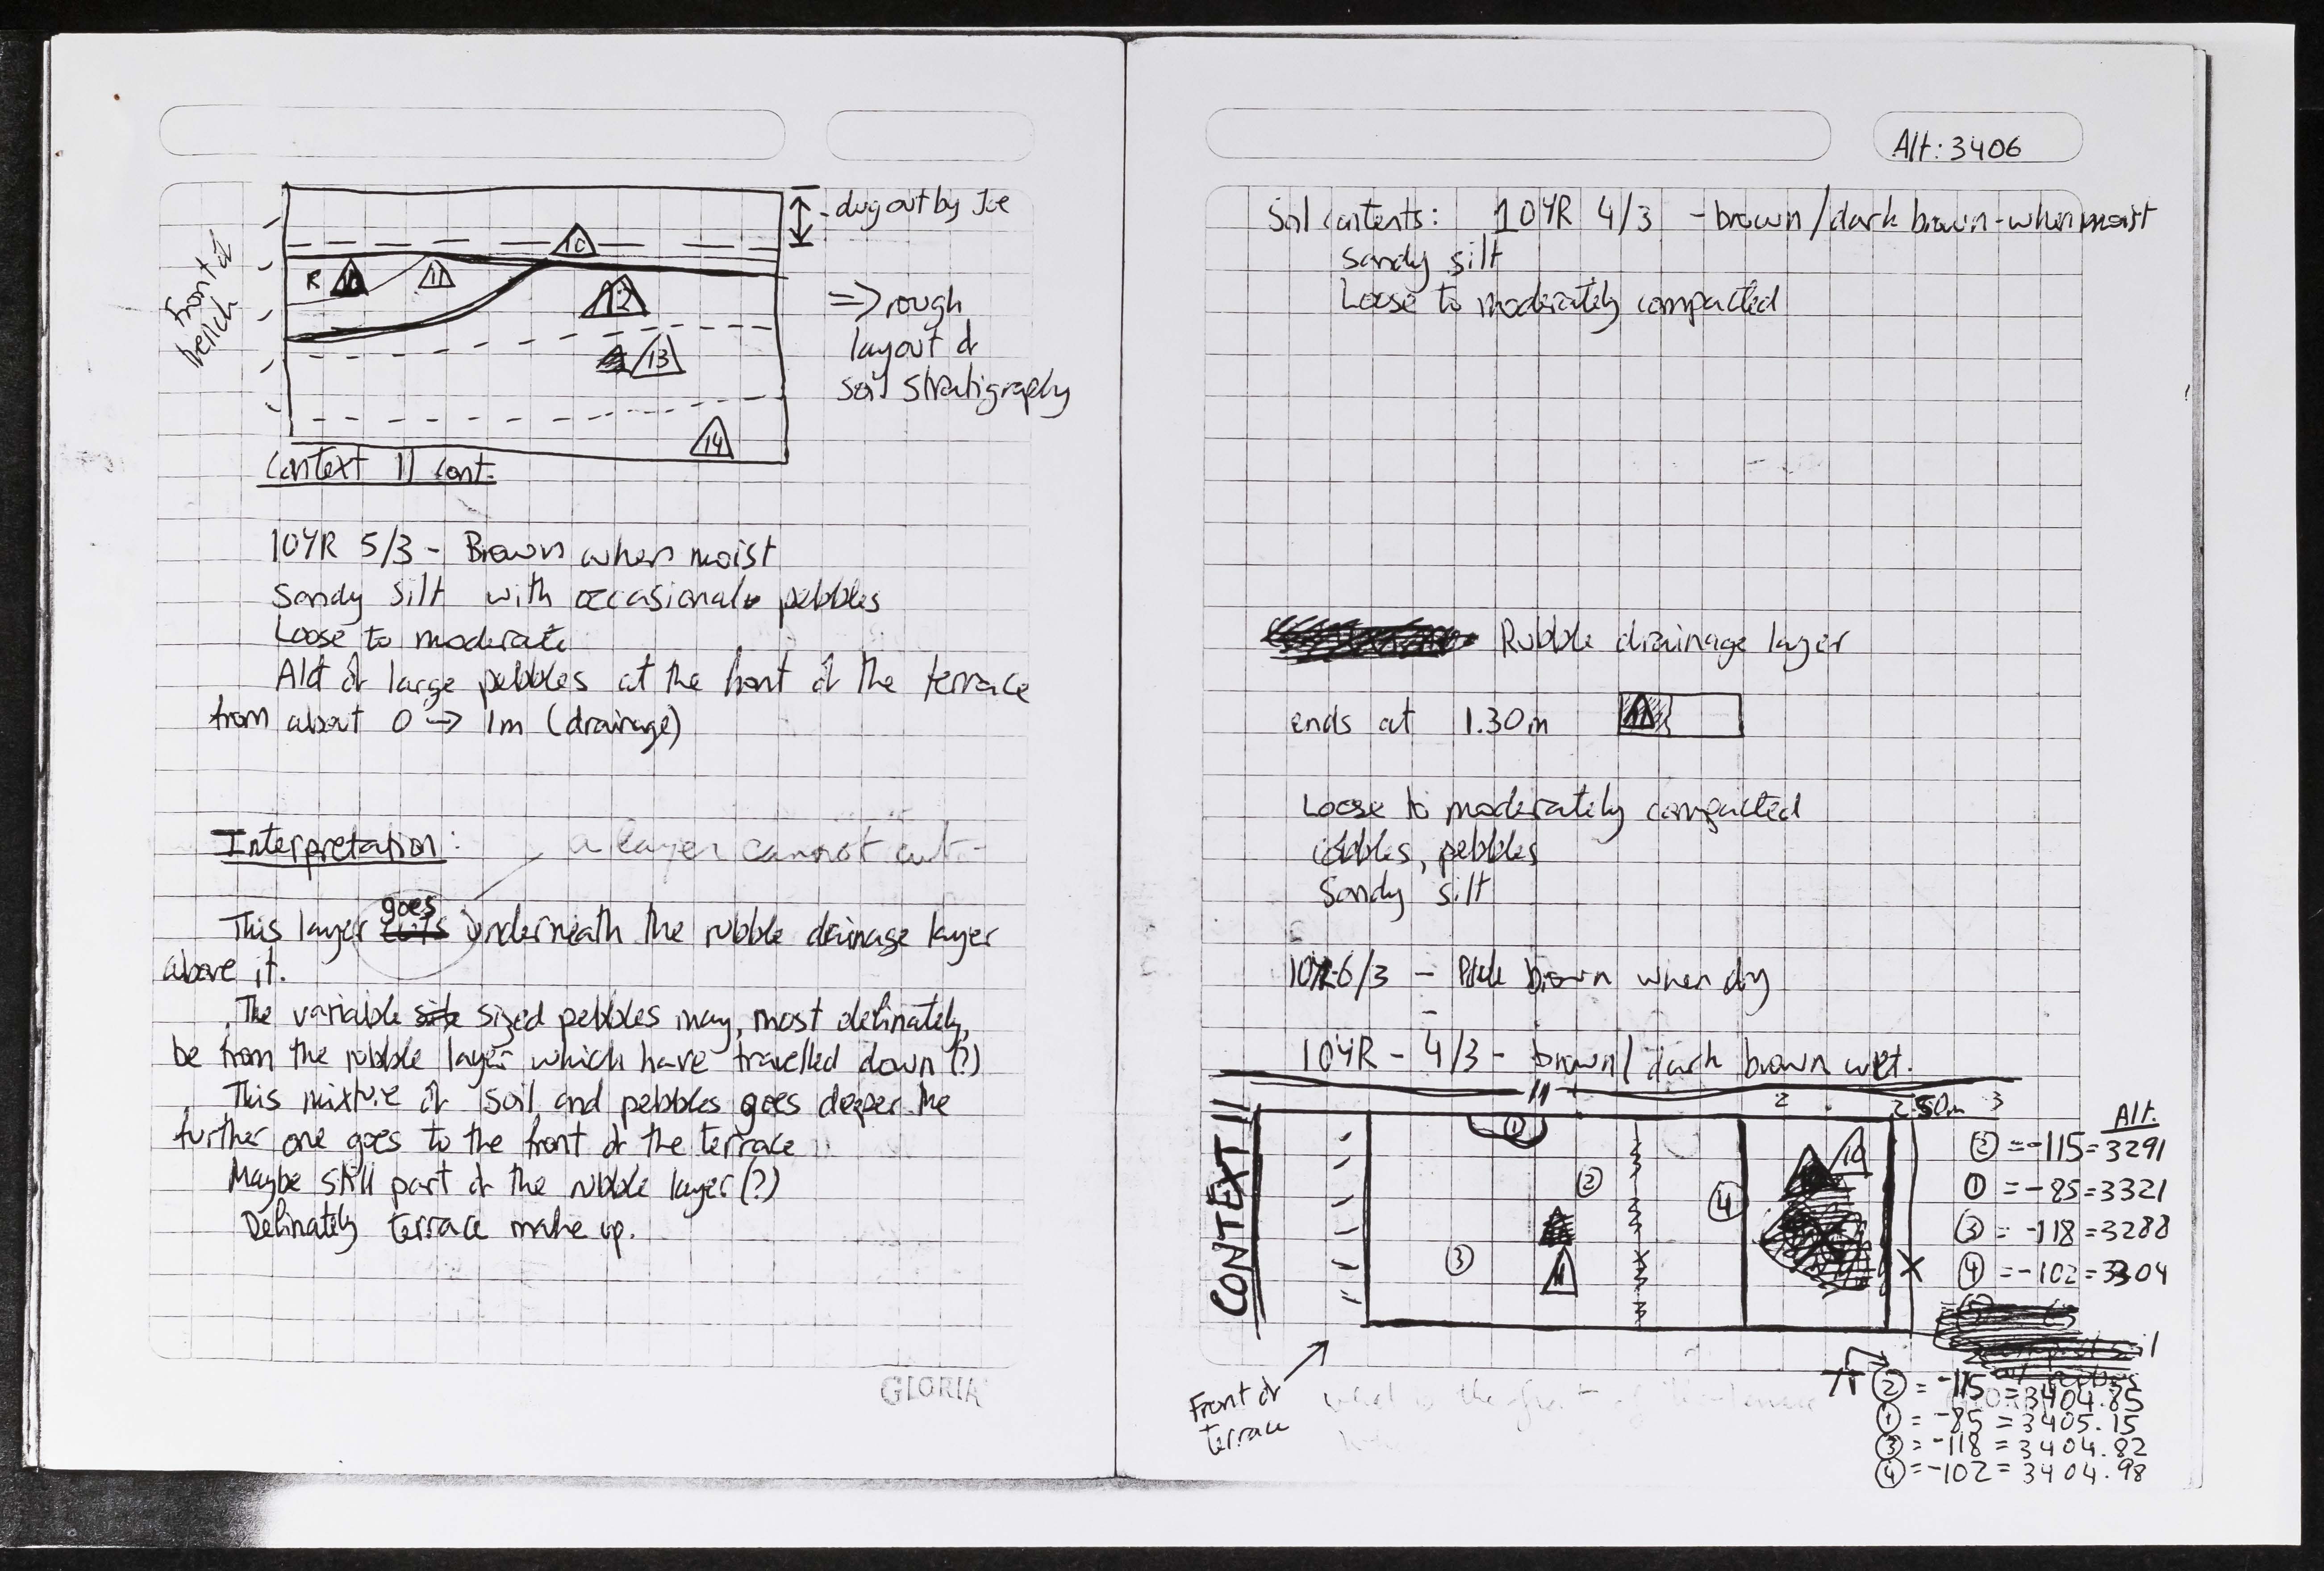 - dug out by Joe
10
R
11
12
13
14
=> rough
layout of
soil stratigraphy
Front of
trench
Context 11 cont.
10YR 5/3 - Brown when moist
Sandy silt with occasional pebbles
Loose to moderate
Alot of large pebbles at the front of the terrace
from about 0 → 1m (drainage)
Interpretation:
a layer cannot cut -
goes
This layer cuts underneath the rubble drainage layer
above it.
The variable size sized pebbles may, most definately,
be from the rubble layer which have travelled down (?)
This mixture of soil and pebbles goes deeper the
further one goes to the front of the terrace
Maybe still part of the rubble layer (?)
Definately terrace make up.
GLORIA
Alt: 3406
Soil contents: 10YR 4/3 - brown/dark brown - when moist
Sandy silt
Loose to moderately compacted
Rubble drainage layer
ends at 1.30m
11
Loose to moderately compacted
cobbles, pebbles
Sandy silt
10YR 6/3 - Pale brown when dry
10YR - 4/3 - brown/dark brown wet.
CONTEXT 11
2
2.50m
3
1
2
3
4
10
11
X
Alt.
② = -115 = 3291
① = -85 = 3321
③ = -118 = 3288
④ = -102 = 3304
② = -115 = 3404.85
① = -85 = 3405.15
③ = -118 = 3404.82
④ = -102 = 3404.98
Front of
terrace
what is the front of the terrace